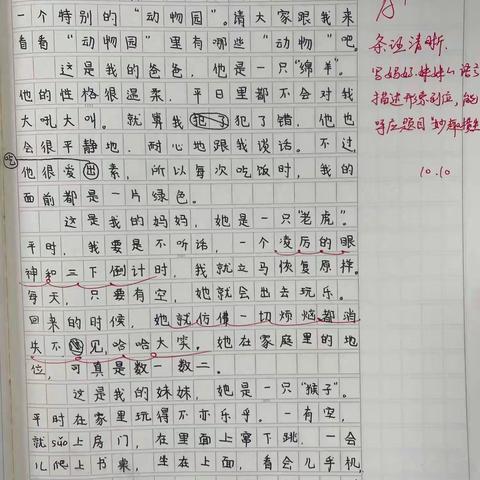 一个特别的“动物园”。请大家跟我来
看看“动物园”里有哪些“动物”吧。
这是我的爸爸，他是一只“绵羊”。
他的性格很温柔，平日里都不会对我
大吼大叫。就算我犯了犯了错，他也
会很平静地、耐心地跟我说话。不过，
吃
他很爱出素，所以每次吃饭时，我的
面前都是一片绿色。
这是我的妈妈，她是一只“老虎”。
平时，我要是不听话，一个凌厉的眼
神和三下倒计时，我就立马恢复原样。
每天，只要有空，她就会出去玩乐。
回来的时候，她就仿佛一切烦恼都消
失不见，哈哈大实。她在家庭里的地
位，可真是数一数二。
这是我的妹妹，她是一只“猴子”。
平时在家里玩得不亦乐乎。一有空，
就suō上房门，在里面上窜下跳，一会
儿爬上书桌，坐在上面，看会儿手机，
A+
条证清晰.
写妈妈.妹妹
描述形象到位，能
呼应题目
10.10